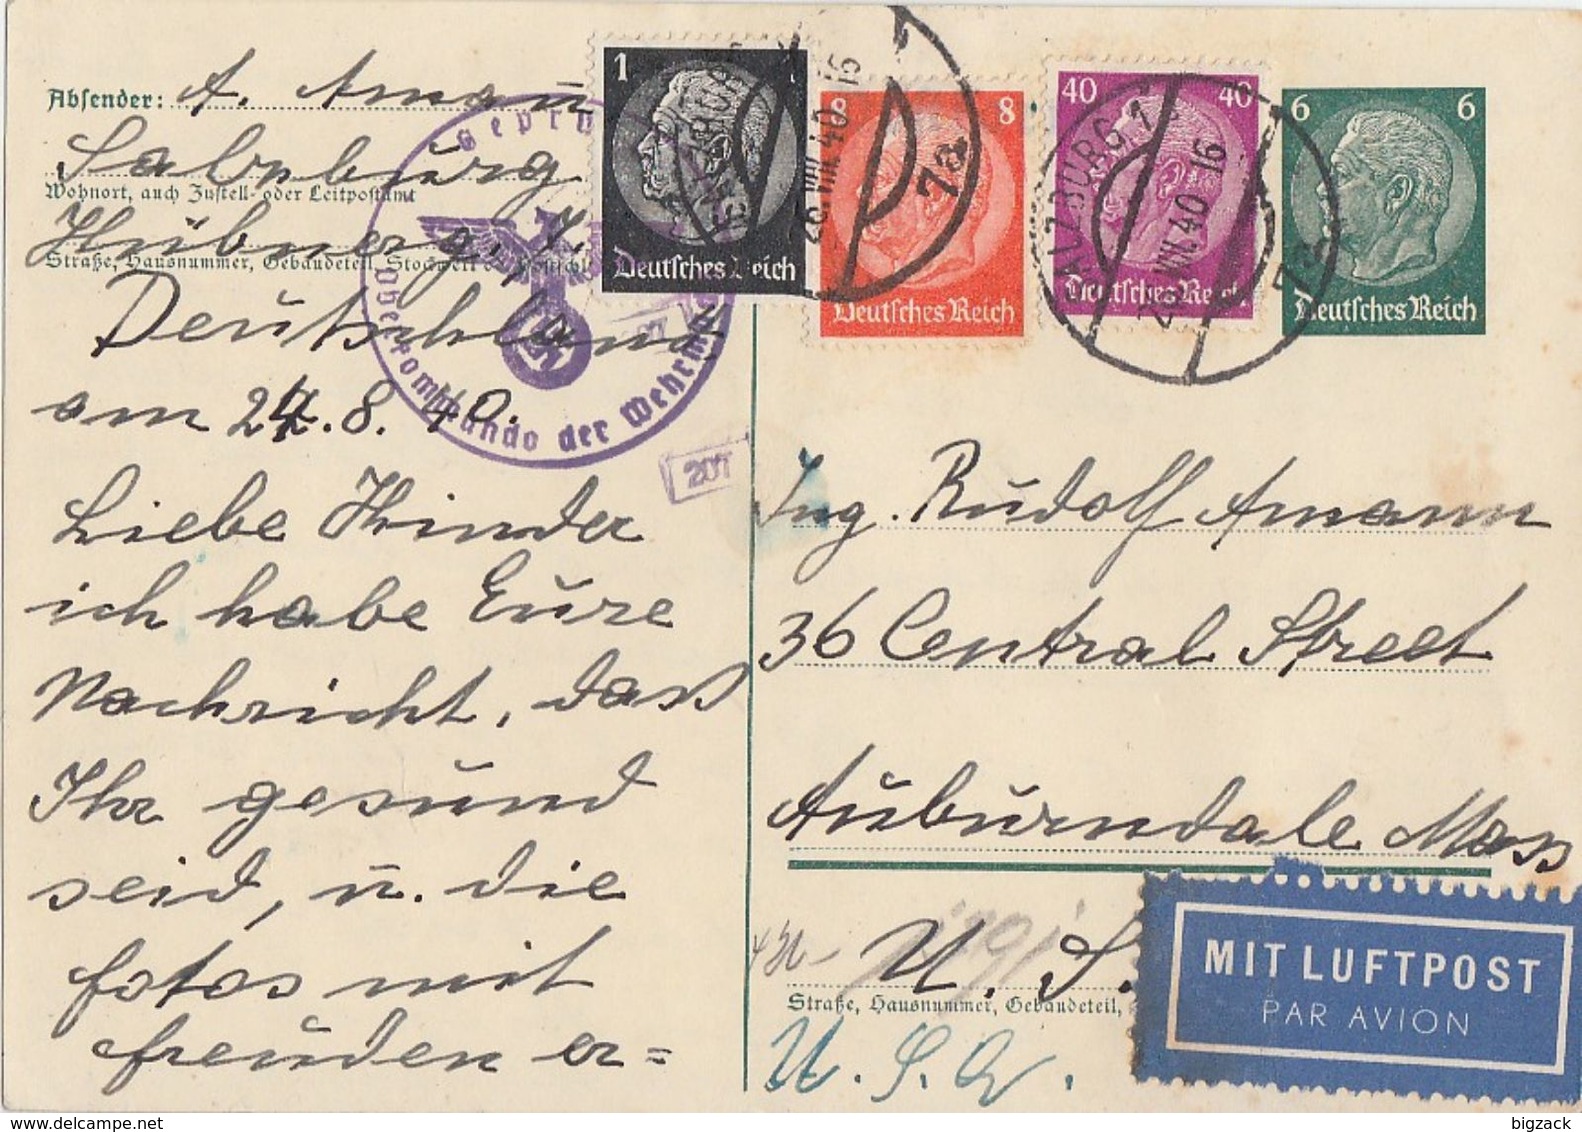 Absender: A. Amann
Salzburg
Wohnort, auch Zustell- oder Leitpostamt
Hübnerg. 7.
Straße, Hausnummer, Gebäudeteil, Stockwerk
Deutschland
am 24.8.40.
Liebe Kinder
ich habe Eure
Nachricht, dass
Ihr gesund
seid, u. die
fotos mit
freuden er=
Geprüft
Oberkommando der Wehrmacht
207
1
Deutsches Reich
8 8
Deutsches Reich
40 40
Deutsches Reich
6 6
Deutsches Reich
SALZBURG 1
26.VIII.40 16
7a
SALZBURG 1
26.VIII.40 16
Ing. Rudolf Amann
36 Central Street
Auburndale Mass
U. S.
Straße, Hausnummer, Gebäudeteil,
U. S. A.
MIT LUFTPOST
PAR AVION
bigzack